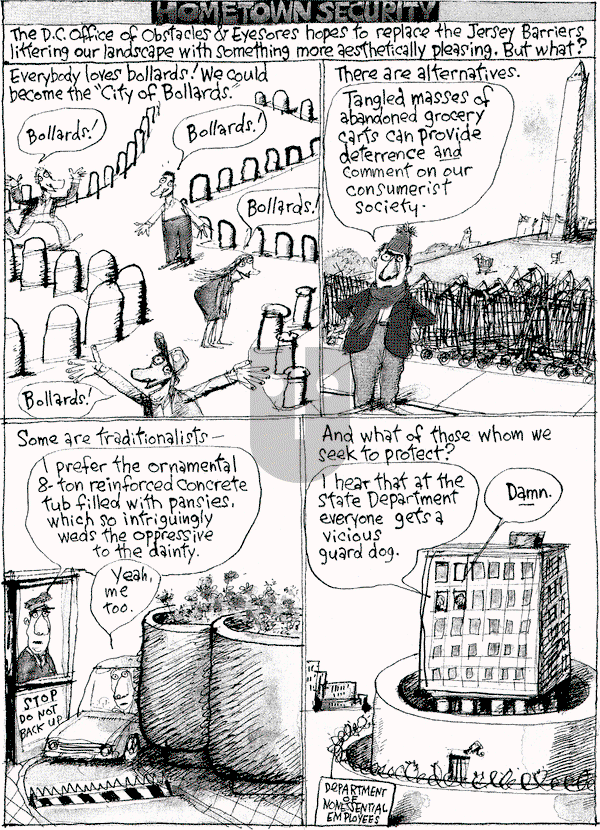 HOMETOWN SECURITY
The D.C. Office of Obstacles & Eyesores hopes to replace the Jersey Barriers
littering our landscape with something more aesthetically pleasing. But what?
Everybody loves bollards! We could
become the "City of Bollards."
Bollards!
Bollards!
Bollards!
Bollards!
There are alternatives.
Tangled masses of
abandoned grocery
carts can provide
deterrence and
comment on our
consumerist
society.
Some are traditionalists—
I prefer the ornamental
8-ton reinforced concrete
tub filled with pansies,
which so intriguingly
weds the oppressive
to the dainty.
Yeah,
me
too.
STOP
DO NOT
BACK UP
And what of those whom we
seek to protect?
I hear that at the
State Department
everyone gets a
vicious
guard dog.
Damn.
DEPARTMENT
OF
NONESSENTIAL
EMPLOYEES